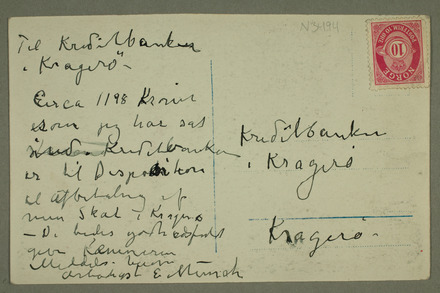 N 3494
Til Kreditbanken
i Kragerø –
Circa 1198 Kroner
som jeg har sat
ind. Kreditbanken
er til Disposition
til afbetaling af
min Skat i Kragerø
– De bedes godt
give Kæmneren
Meddelelse herom
Arbødigst E. Munch
Kreditbanken
i Kragerø
Kragerø –
10
NORGE